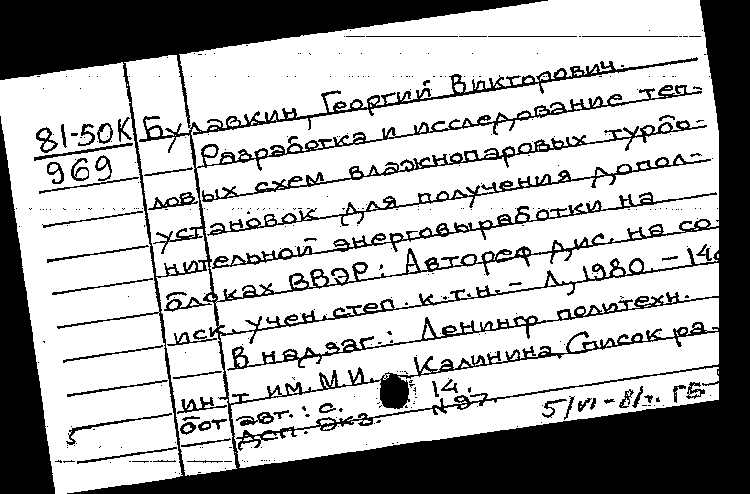 81-50К
969
Булавкин, Георгий Викторович.
Разработка и исследование теп-
ловых схем влажнопаровых турбо-
установок для получения допол-
нительной энерговыработки на
блоках ВВЭР: Автореф дис. на со
иск. учен. степ. к.т.н. - Л., 1980. - 14с
В надзаг.: Ленингр политехн.
ин-т им. М.И. Калинина. Список ра-
бот авт.: с. 14.
ДСП. Экз. N 97.
5/VI-81г. ГБ
5